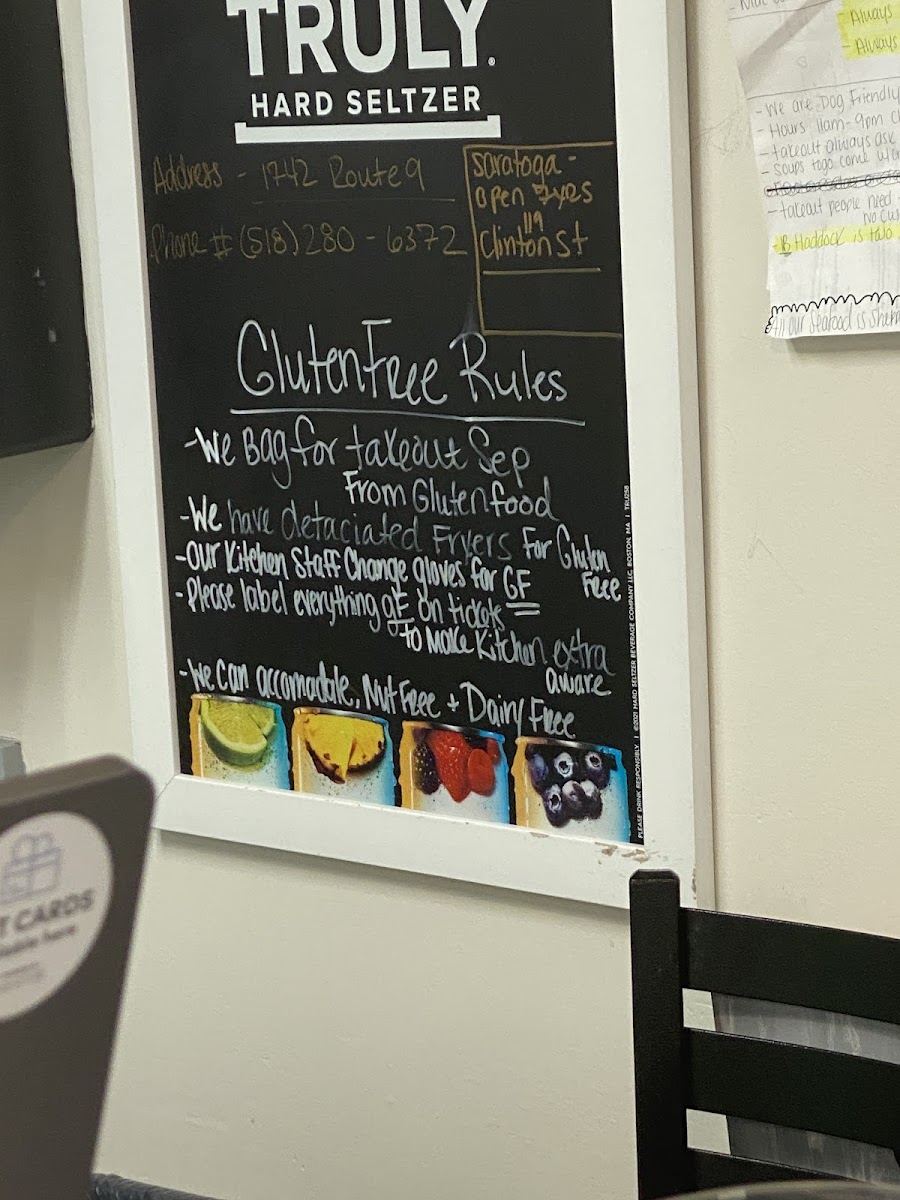 TRULY.
HARD SELTZER
Address - 1742 Route 9
Phone # (518) 280 - 6372
Saratoga -
open 7yrs
119
Clinton St
Gluten Free Rules
- We Bag for takeout Sep
From Gluten food
- We have detaciated Fryers For Gluten
Free
- Our Kitchen Staff Change gloves for GF
- Please label everything GF on tickets
to Make Kitchen extra
aware
- We Can accomadate, Nut Free + Dairy Free
PLEASE DRINK RESPONSIBLY. | ©2021 HARD SELTZER BEVERAGE COMPANY LLC, BOSTON, MA | TRU258
Always
- Always
- We are Dog Friendly
- Hours 11am - 9pm
- takeout always ask
- soups togo come
- takeout people need
No
- B Haddock is
All our Seafood is
T CARDS
here